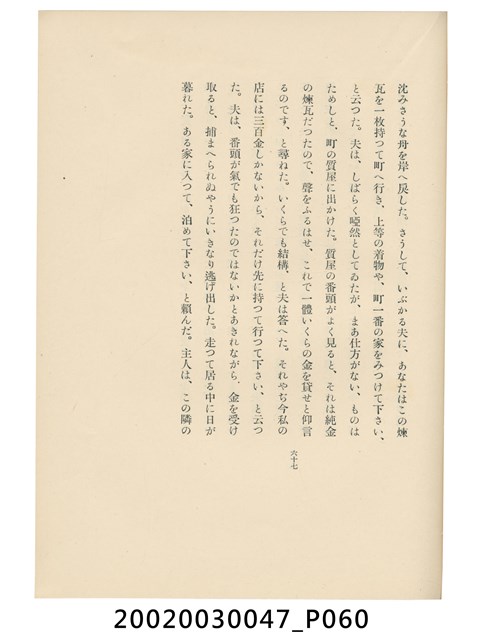 沈みさうな舟を岸へ戻した。さうして、いぶかる夫に、あなたはこの煉
瓦を一枚持つて町へ行き、上等の着物や、町一番の家をみつけて下さい、
と云つた。夫は、しばらく啞然としてゐたが、まあ仕方がない、ものは
ためしと、町の質屋に出かけた。質屋の番頭がよく見ると、それは純金
の煉瓦だつたので、聲をふるはせ、これで一體いくらの金を貸せと仰言
るのです、と尋ねた。いくらでも結構、と夫は答へた。それやぢ今私の
店には三百金しかないから、それだけ先に持つて行つて下さい、と云つ
た。夫は、番頭が氣でも狂つたのではないかとあきれながら、金を受け
取ると、捕まへられぬやうにいきなり逃げ出した。走つて居る中に日が
暮れた。ある家に入つて、泊めて下さい、と賴んだ。主人は、この隣の
六十七
20020030047_P060